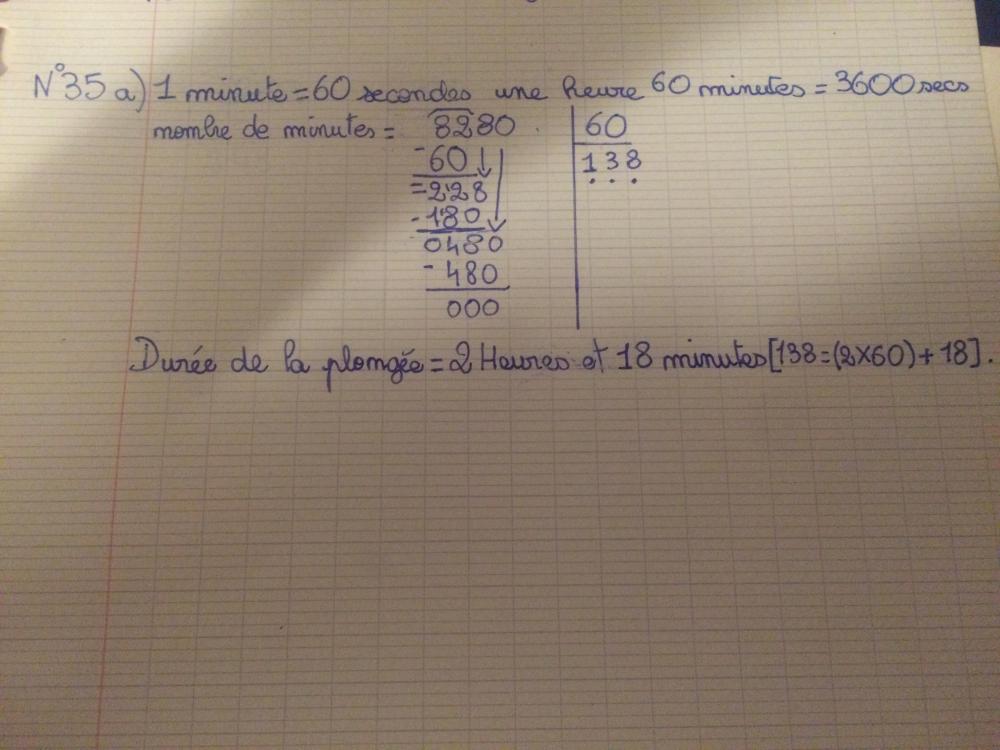 N°35 a) 1 minute = 60 secondes une heure 60 minutes = 3600 secs
nombre de minutes = 8280 60
-60 138
=228
-180
0480
-480
000
Durée de la plongée = 2 Heures et 18 minutes [138 = (2×60) + 18].